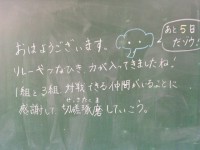 おはようございます。
リレーやつなひき、力が入ってきましたね！
1組と3組、対戦できる仲間がいることに
感謝して、切磋琢磨していこう。
せっさたくま
あと5日
だゾウ！